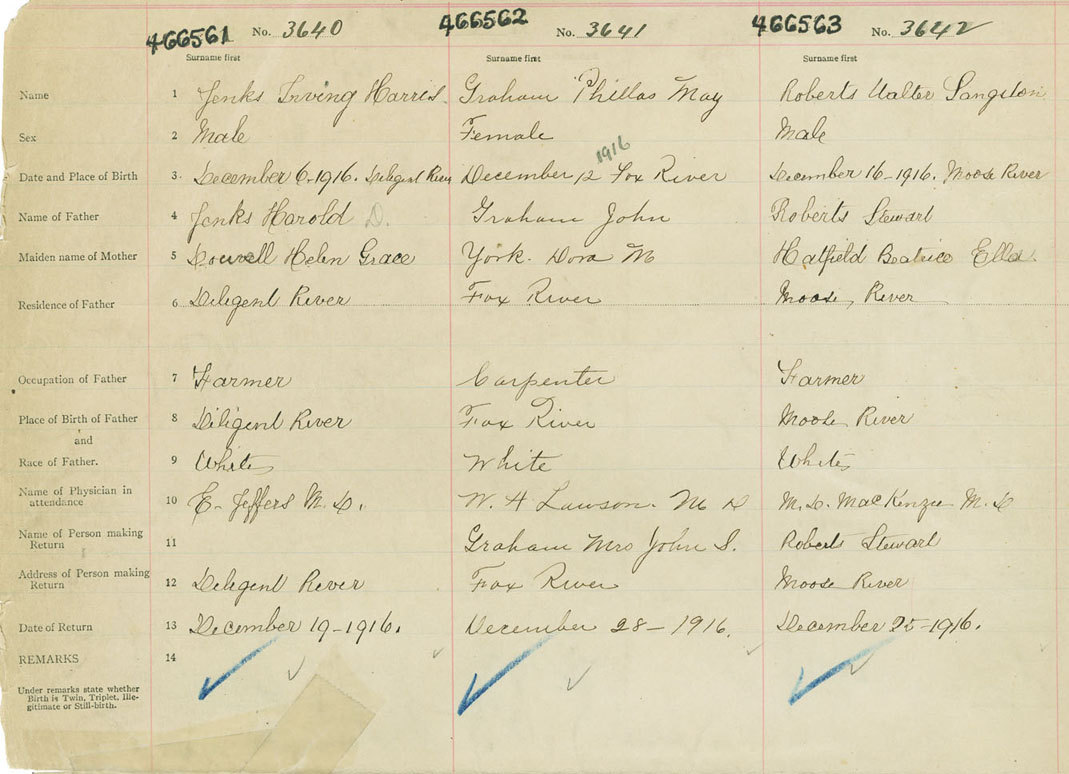 466561 No. 3640 466562 No. 3641 466563 No. 3642
Surname first Surname first Surname first
Name 1 Jenks Irving Harris. Graham Phillas May Roberts Walter Sangston
Sex 2 Male Female Male
1916
Date and Place of Birth 3. December 6-1916. Diligent River December 12 Fox River December 16-1916. Moose River
Name of Father 4 Jenks Harold D. Graham John Roberts Stewart
Maiden name of Mother 5 Helen Grace York. Dora M Hatfield Beatrice Ella.
Residence of Father 6 Diligent River Fox River Moose River
Occupation of Father 7 Farmer Carpenter Farmer
Place of Birth of Father 8 Diligent River Fox River Moose River
and
Race of Father. 9 White White White
Name of Physician in
attendance 10 E. Jeffers M.D. W. H Lawson. M D M.D. MacKenzie M.D
Name of Person making
Return 11 Graham Mrs John S. Roberts Stewart
Address of Person making
Return 12 Diligent River Fox River Moose River
Date of Return 13 December 19-1916. December 28-1916. December 25-1916.
REMARKS 14
Under remarks state whether
Birth is Twin, Triplet, Ille-
gitimate or Still-birth.